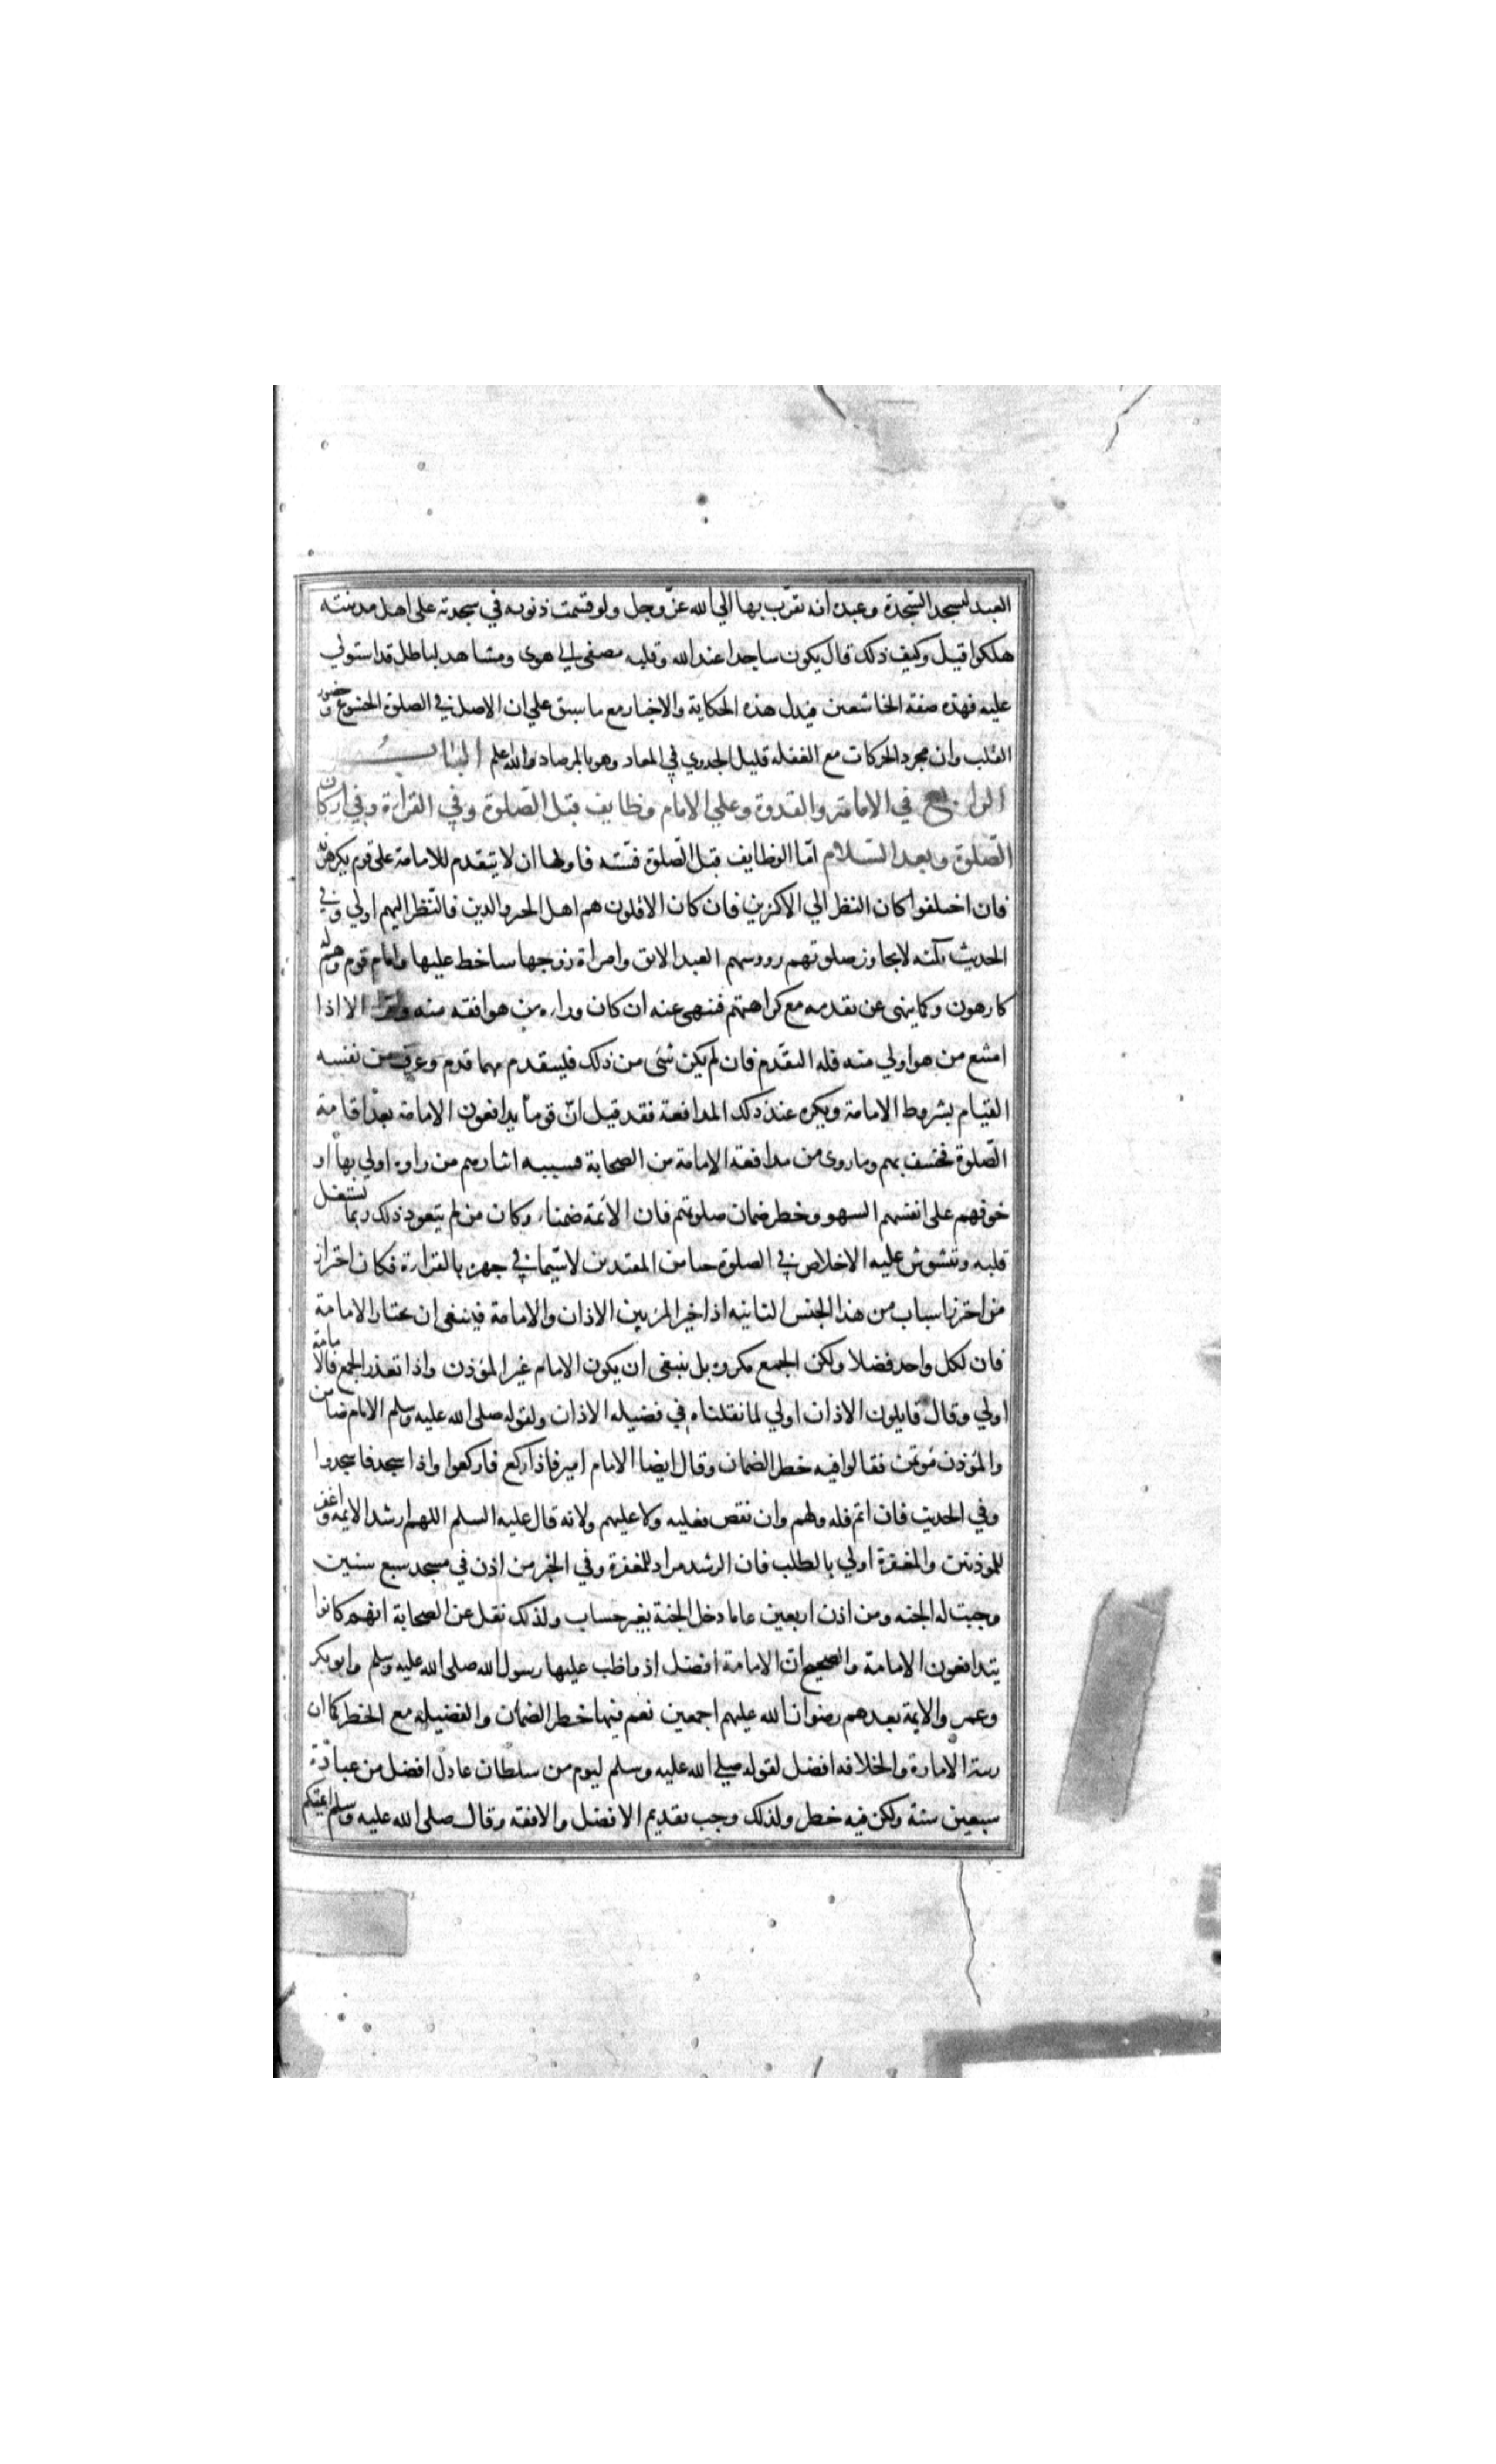 العبد ليسجد السجدة وعبده انه تقرب بها الي الله عز وجل ولو قسمت ذنوبه في سجدته على اهل مدينته
هلكوا قيل وكيف ذلك قال يكون ساجدا عند الله وقلبه مصغى الي هوى ومشاهد لباطل قد استولي
عليه فهذه صفة الخاشعين فيدل هذه الحكاية والاخبار مع ما سبق علي ان الاصل في الصلوة الخشوع وحضور
القلب وان مجرد الحركات مع الغفلة قليل الجدوي في المعاد وهو بالمرصاد والله اعلم الباب
الرابع في الامامة والقدوة وعلي الامام وظايف قبل الصلوة وفي القراءة وفي اركان
الصلوة وبعد السلام اما الوظايف قبل الصلوة فستة فاولها ان لا يتقدم للامامة على قوم يكرهونه
فان اختلفوا كان النظر الي الاكثرين فان كان الاقلون هم اهل الخير والدين فالنظر اليهم اولي وفي
الحديث ثلثه لا يجاوز صلوتهم روسهم العبد الابق وامراة زوجها ساخط عليها وامام قوم وهم له
كارهون وكما ينهى عن تقدمه مع كراهتهم فنهي عنه ان كان وراءه من هو افقه منه الا اذا
امتنع من هو اولي منه فله التقدم فان لم يكن شئ من ذلك فليتقدم مهما قدم وعرف من نفسه
القيام بشروط الامامة ويكره عند ذلك المدافعة فقد قيل ان قوما يدافعون الامامة بعد اقامة
الصلوة فخسف بهم وما روى من مدافعة الامامة من الصحابة فسببه ايثارهم من راوه اولي بها او
خوفهم على انفسهم السهو وخطر ضمان صلوتهم فان الائمة ضمناء وكان من لم يتعود ذلك ربما يشتغل
قلبه وتشوش عليه الاخلاص في الصلوة حيا من المقتدين لا سيما في جهره بالقراءة فكان احتراز
من احترز اسباب من هذا الجنس الثانية اذا خير المرء بين الاذان والامامة فينبغي ان يختار الامامة
فان لكل واحد فضلا ولكن الجمع مكروه بل ينبغى ان يكون الامام غير المؤذن واذا تعذر الجمع فالامامة
اولي وقال قايلون الاذان اولي لما نقلناه في فضيله الاذان ولقوله صلى الله عليه وسلم الامام ضامن
والمؤذن مؤتمن فقالوا فيه خطر الضمان وقال ايضا الامام امير فاذا ركع فاركعوا واذا سجد فاسجدوا
وفي الحديث فان اتم فله ولهم وان نقص فعليه ولا عليهم ولانه قال عليه السلم اللهم ارشد الائمة واغفر
للموذنين والمغفرة اولي بالطلب فان الرشد مراد للمغفرة وفي الخبر من اذن في مسجد سبع سنين
وجبت له الجنه ومن اذن اربعين عاما دخل الجنة بغير حساب ولذلك نقل عن الصحابة انهم كانوا
يتدافعون الامامة والصحيح ان الامامة افضل اذ واظب عليها رسول الله صلى الله عليه وسلم وابوبكر
وعمر والايمة بعدهم رضوان الله عليهم اجمعين نعم فيها خطر الضمان والفضيلة مع الخطر كما ان
رتبة الامارة والخلافه افضل لقوله صلي الله عليه وسلم ليوم من سلطان عادل افضل من عبادة
سبعين سنة ولكن فيه خطر ولذلك وجب تقديم الافضل والافقه وقال صلى الله عليه وسلم ايمتكم